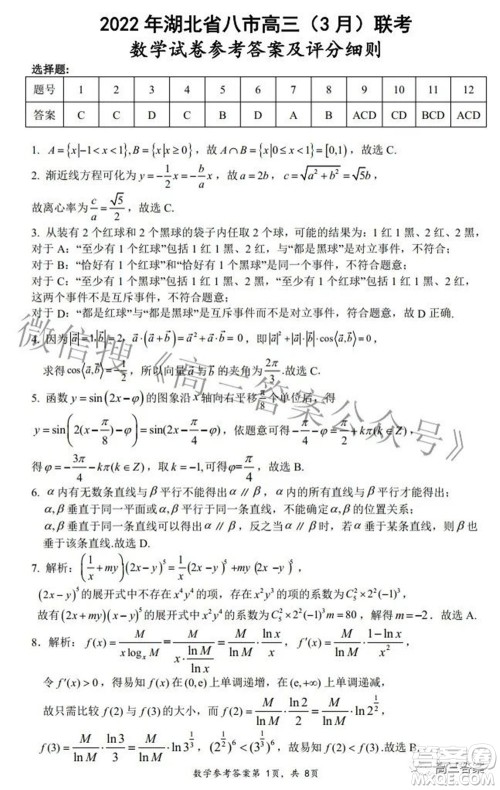 2022 年湖北省八市高三（3 月）联考
数学试卷参考答案及评分细则
选择题：
题号 1 2 3 4 5 6 7 8 9 10 11 12
答案 C C D C B D A B ACD CD BCD ACD
1. A={x|-1<x<1},B={x|x≥0}，故 A∩B={x|0≤x<1}=[0,1)，故选 C.
2. 渐近线方程可化为 y=-1/2 x=-b/a x，故 a=2b，c=√(a²+b²)=√5b，
故离心率为 c/a=√5/2，故选 C.
3. 从装有 2 个红球和 2 个黑球的袋子内任取 2 个球，可能的结果为：1 红 1 黑、2 红、2 黑，
对于 A：“至少有 1 个红球”包括 1 红 1 黑、2 红，与“都是黑球”是对立事件，不符合；
对于 B：“恰好有 1 个红球”和“恰好有 1 个黑球”是同一个事件，不符合题意；
对于 C：“至少有 1 个黑球”包括 1 红 1 黑、2 黑，“至少有 1 个红球”包括 1 红 1 黑、2 红，
这两个事件不是互斥事件，不符合题意；
对于 D：“都是红球”与“都是黑球”是互斥事件而不是对立事件，符合题意，故 D 正确.
4. 因为|a|=1,|b|=2，a·(a+b)=a²+a·b=0，即|a|²+|a|·|b|·cos⟨a,b⟩=0，
求得 cos⟨a,b⟩=-1/2，所以向量 a 与 b 的夹角为 2π/3.故选 C.
5. 函数 y=sin(2x-φ)的图象沿 x 轴向右平移 π/8 个单位后，得
y=sin[2(x-π/8)-φ]=sin(2x-π/4-φ)，依题意可得-π/4-φ=π/2+kπ(k∈Z)，
得 φ=-3π/4-kπ(k∈Z)，取 k=-1,可得 φ=π/4，故选 B.
6. α内有无数条直线与β平行不能得出α∥β，α内的所有直线与β平行才能得出；
α,β垂直于同一平面或α,β平行于同一条直线，不能确定α,β的位置关系；
α,β垂直于同一条直线可以得出α∥β，反之当α∥β时，若α垂直于某条直线，则β也
垂直于该条直线.故选 D.
7. 解析：(1/x+my)(2x-y)⁵=1/x(2x-y)⁵+my(2x-y)⁵，
(2x-y)⁵的展开式中不存在 x²y⁴的项，存在 x²y³的项，
故有(2x+my)(x-y)⁵的展开式中 x²y⁴的系数为 C₅²2²(-1)³m=80，解得 m=-2. 故选 A.
8. 解析：f(x)=M/(x log_x M)=M/(x·ln M/ln x)=M/ln M·ln x/x，f′(x)=M/ln M·(1-ln x)/x²，
令 f′(x)>0，得易知 f(x)在(0,e)上单调递增，在(e,+∞)上单调递减，
故只需比较 f(2)与 f(3)的大小，而 f(2)=M/ln M·ln2/2=M/ln M·ln2^(1/2)，
f(3)=M/ln M·ln3/3=M/ln M·ln3^(1/3)，(2^(1/2))⁶<(3^(1/3))⁶，故 f(2)<f(3)，选 B.
数学参考答案第 1页，共 8页
微信搜《高三答案公众号》
高三答案